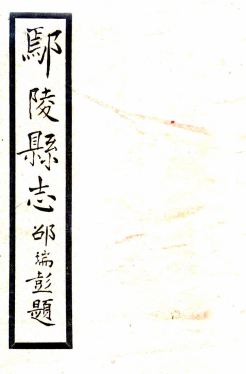 鄢陵縣志邵瑞彭題